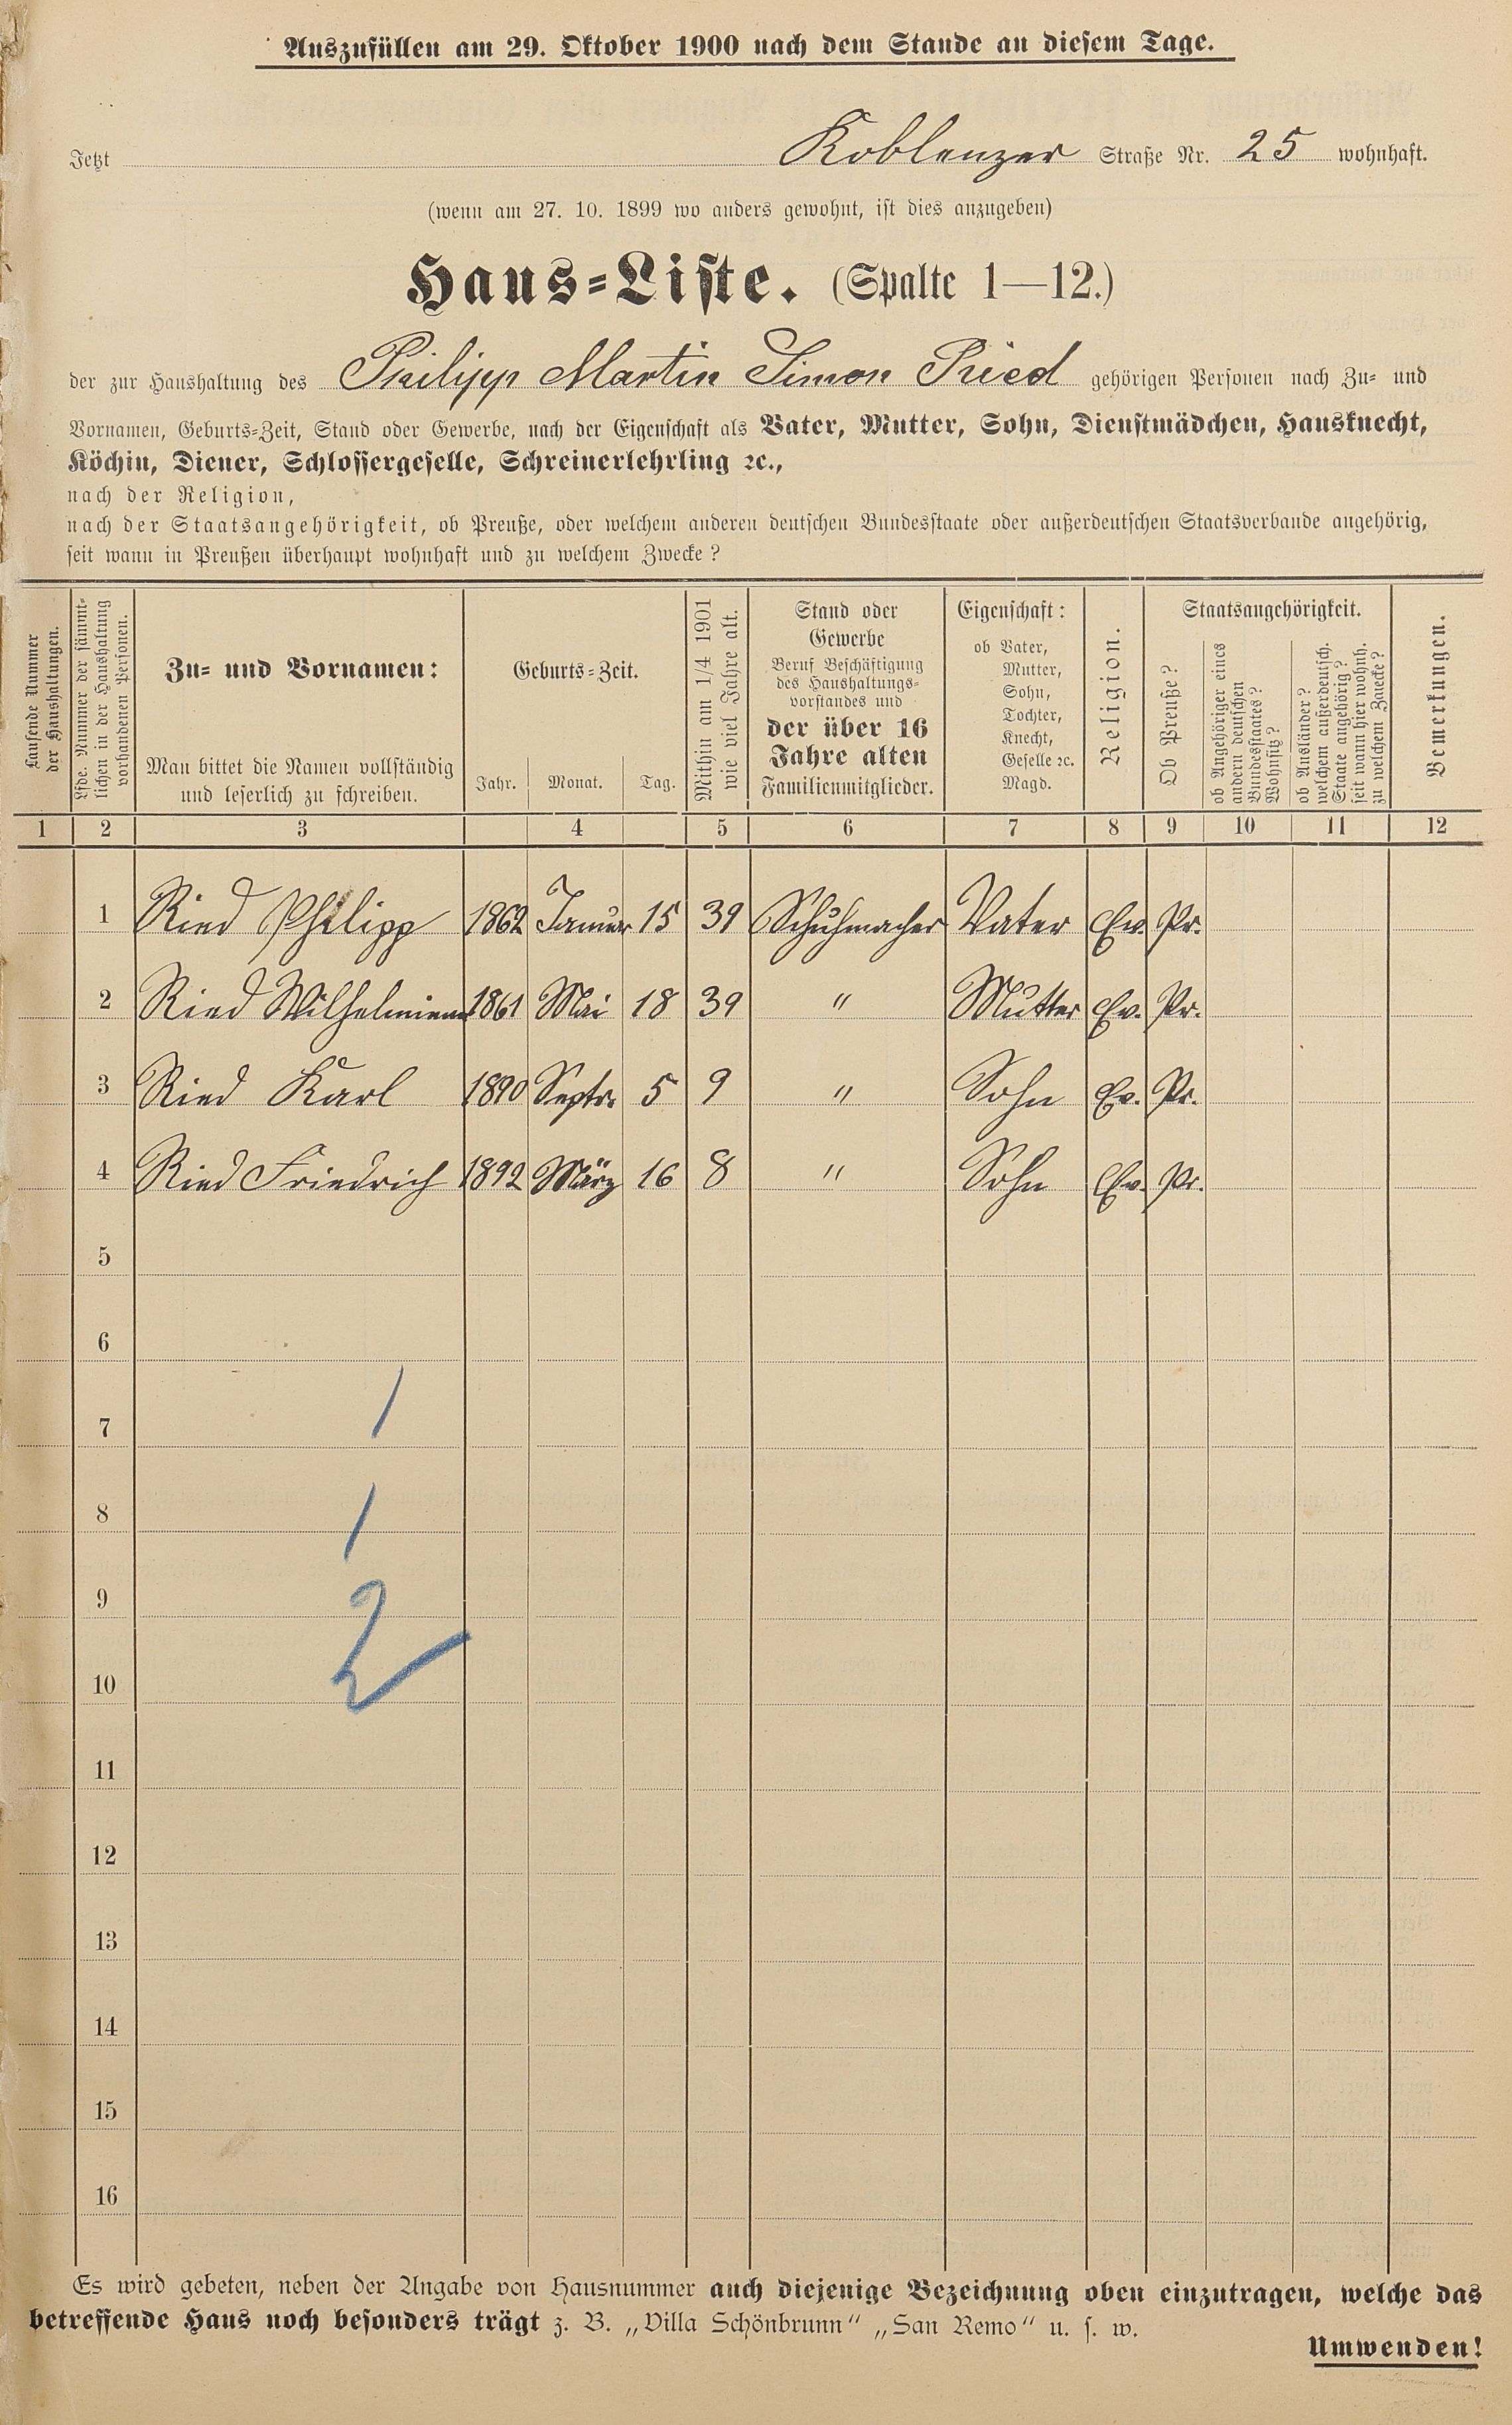 Auszufüllen am 29. Oktober 1900 nach dem Stande an diesem Tage.
Jetzt Koblenzer Straße Nr. 25 wohnhaft.
(wenn am 27. 10. 1899 wo anders gewohnt, ist dies anzugeben)
Haus-Liste. (Spalte 1—12.)
der zur Haushaltung des Philipp Martin Simon Ried gehörigen Personen nach Zu- und
Vornamen, Geburts-Zeit, Stand oder Gewerbe, nach der Eigenschaft als Vater, Mutter, Sohn, Dienstmädchen, Hausknecht,
Köchin, Diener, Schlossergeselle, Schreinerlehrling ꝛc.,
nach der Religion,
nach der Staatsangehörigkeit, ob Preuße, oder welchem anderen deutschen Bundesstaate oder außerdeutschen Staatsverbande angehörig,
seit wann in Preußen überhaupt wohnhaft und zu welchem Zwecke?
Laufende Nummer
der Haushaltungen.
Lfde. Nummer der sämmt-
lichen in der Haushaltung
vorhandenen Personen.
Zu- und Vornamen:
Man bittet die Namen vollständig
und leserlich zu schreiben.
Geburts-Zeit.
Jahr. Monat. Tag.
Mithin am 1/4 1901
wie viel Jahre alt.
Stand oder
Gewerbe
Beruf Beschäftigung
des Haushaltungs-
vorstandes und
der über 16
Jahre alten
Familienmitglieder.
Eigenschaft:
ob Vater,
Mutter,
Sohn,
Tochter,
Knecht,
Geselle ꝛc.
Magd.
Religion.
Staatsangehörigkeit.
Ob Preuße?
ob Angehöriger eines
andern deutschen
Bundesstaates?
Wohnsitz?
ob Ausländer?
welchem außerdeutsch.
Staate angehörig?
seit wann hier wohnh.
zu welchem Zwecke?
Bemerkungen.
1 2 3 4 5 6 7 8 9 10 11 12
1 Ried Philipp 1862 Januar 15 39 Schuhmacher Vater Ev. Pr.
2 Ried Wilhelmiene 1861 Mai 18 39 " Mutter Ev. Pr.
3 Ried Karl 1890 Septr. 5 9 " Sohn Ev. Pr.
4 Ried Friedrich 1892 März 16 8 " Sohn Ev. Pr.
5
6
7
1
8
1
9
2
10
11
12
13
14
15
16
Es wird gebeten, neben der Angabe von Hausnummer auch diejenige Bezeichnung oben einzutragen, welche das
betreffende Haus noch besonders trägt z. B. „Villa Schönbrunn“ „San Remo“ u. s. w.
Umwenden!